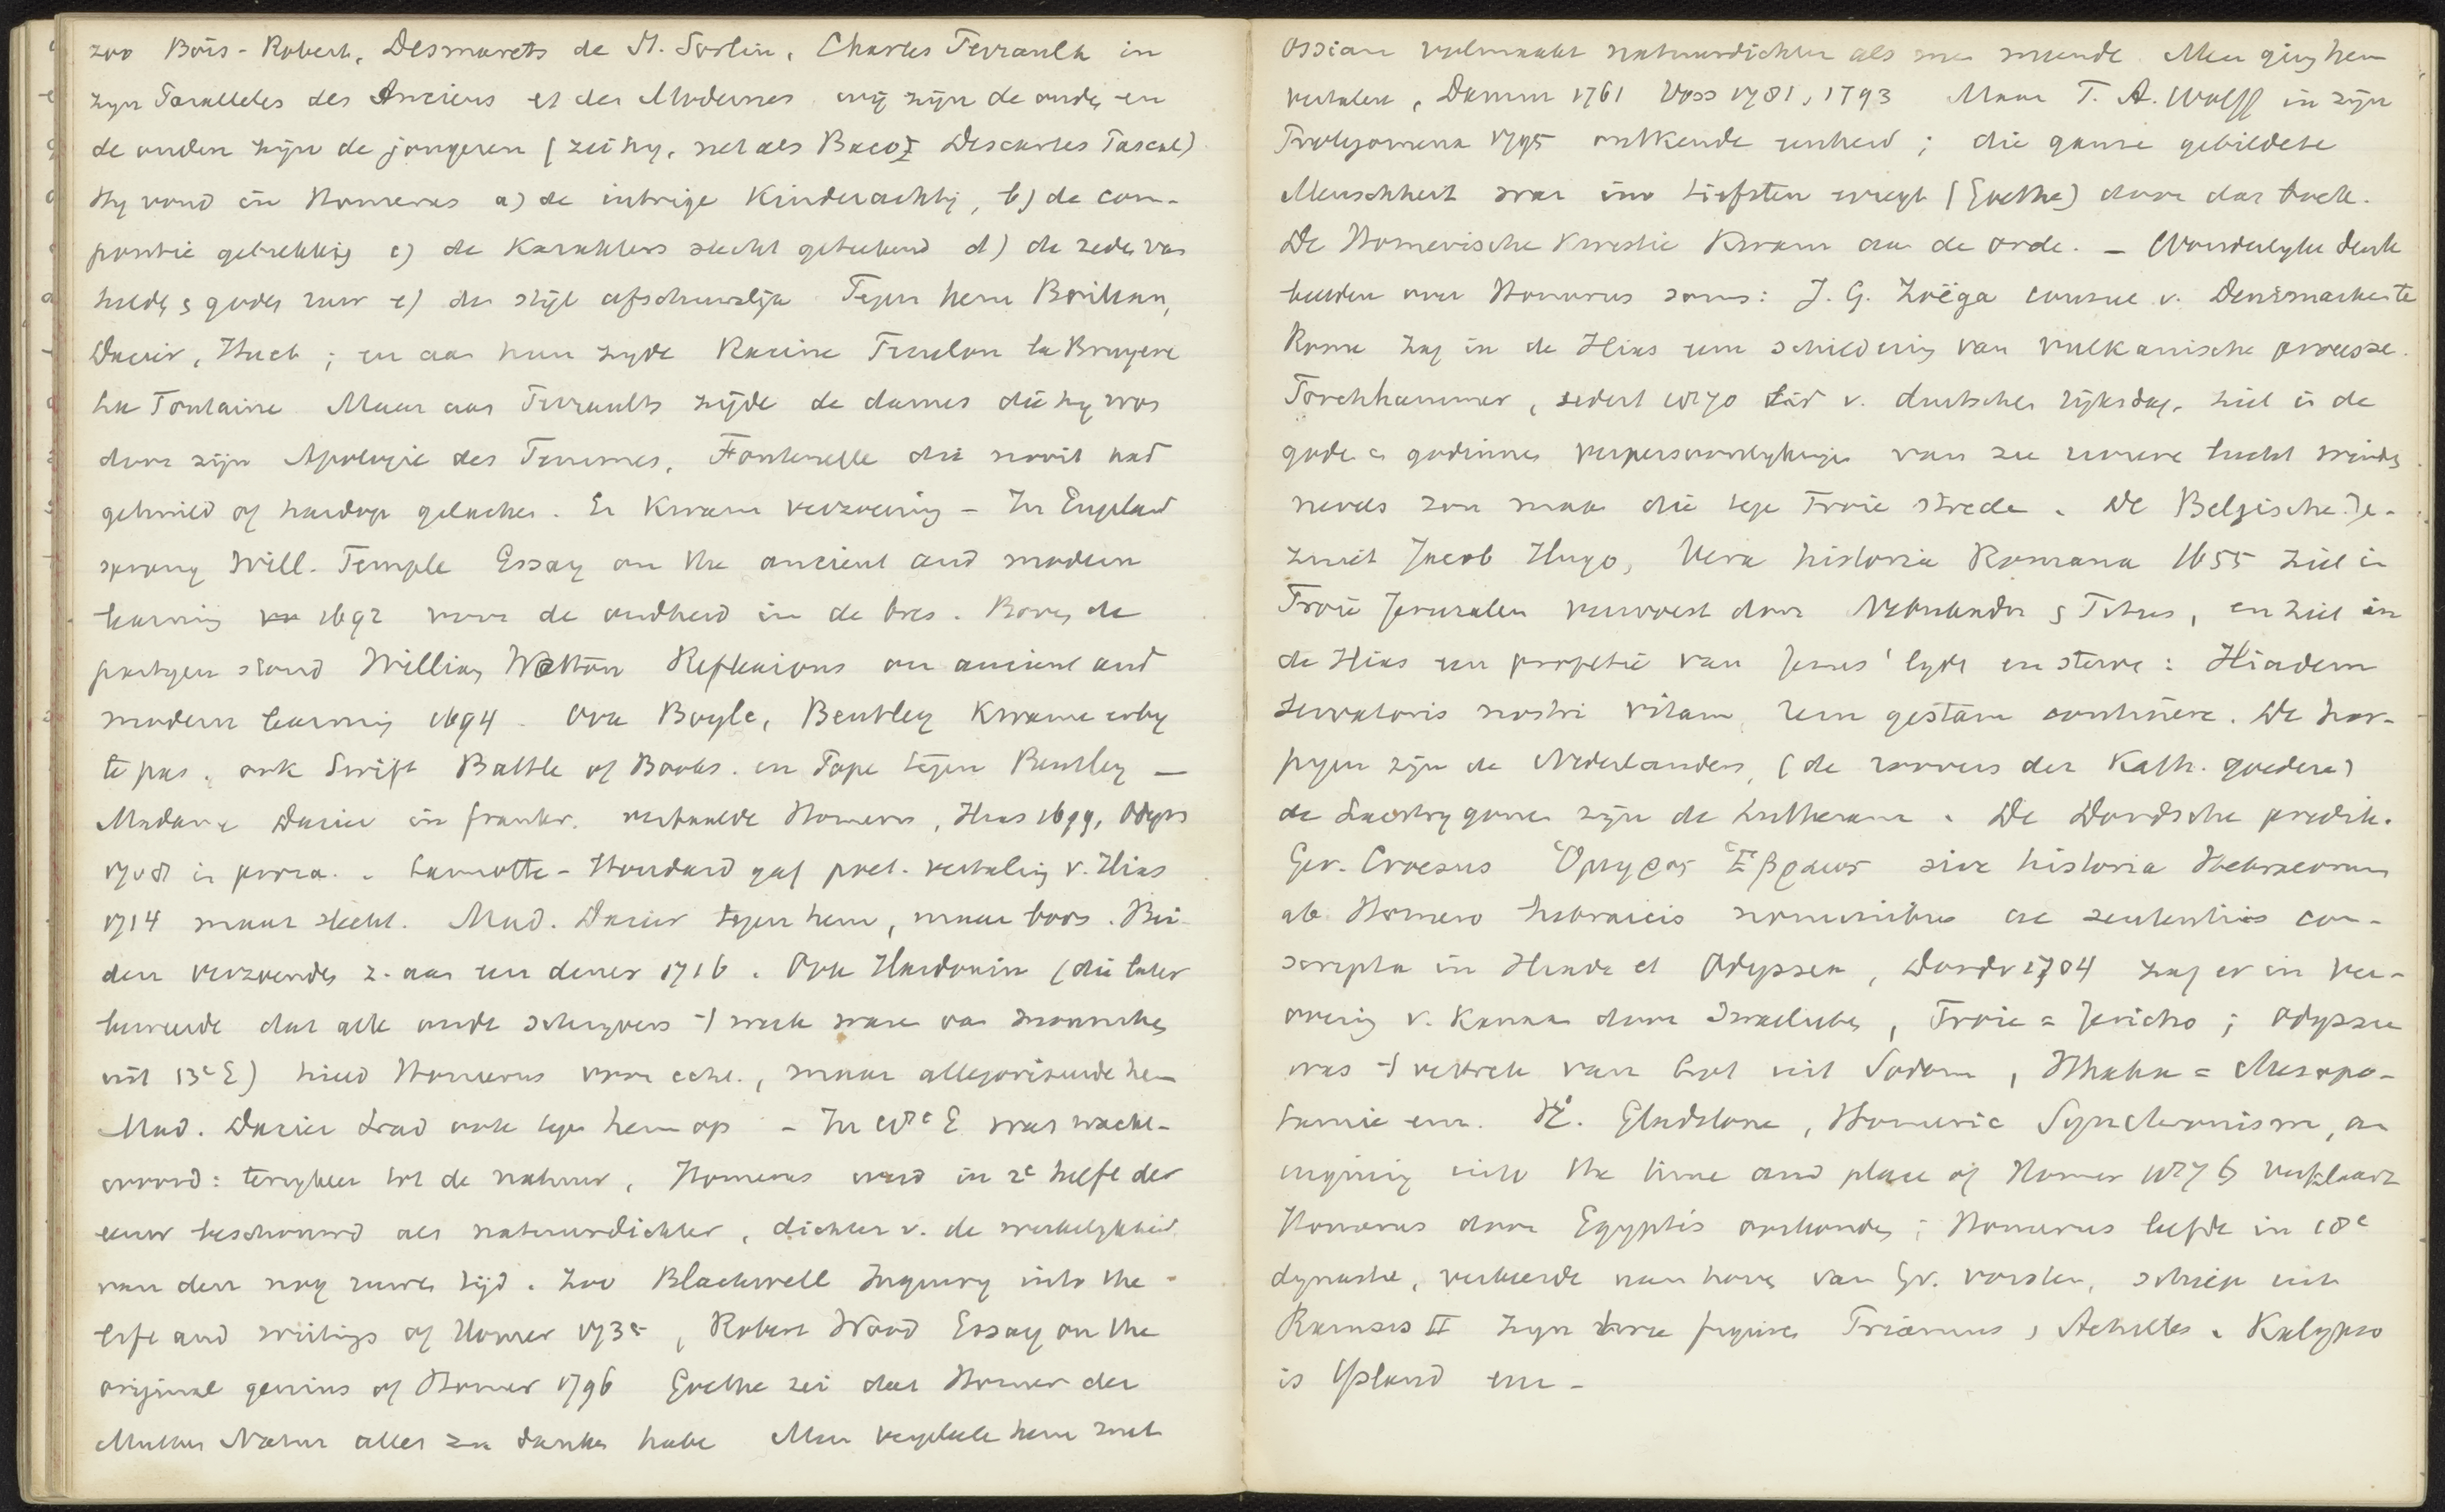 zoo Bois-Robert, Desmarets de St. Sorlin, Charles Perrault in
zyn Paralleles des Anciens et des Modernes wij zijn de oude, en
de ouden zijn de jongeren (zei hy, net als Baco, Descartes Pascal)
Hy vond in Homerus a) de intrige Kinderachtig, b) de com-
positie gebrekkig c) de Karakters slecht geteekend d) de zede van
helde, & goden ruw e) de stijl afschuwelijk Tegen hem Boileau,
Dacier, Huet ; en aan hun zyde Racine Fenelon La Bruyere
La Fontaine Maar aan Perraults zijde de dames die hy won
door zijn Apologie des Femmes, Fontenelle die nooit had
gehuild of hardop gelachen. Er Kwam verzoening – In England
sprong Will. Temple Essay on the ancient and modern
learning 1692 voor de oudheid in de bres. Boven de
partyen stond William Wotton Reflexions on ancient and
modern learning 1694 – Ook Boyle, Bentley Kwame erby
te pas. ook Swift Battle of Books. en Pope tegen Bentley –
Madame Dacier in frankr. vertaalde Homerus, Ilias 1699, Odyss
1708 in proza. Lamotte-Houdard gaf poet. vertaling v. Ilias
1714 maar slecht. Mad. Dacier tegen hem, maar boos. Bei-
den verzoenden z. aan een diner 1716. Ook Hardouin (die later
beweerde dat alle oude schryvers 't werk ware van monniken
uit 13e E) hield Homerus voor echt, maar allegoriseerde hem
Mad. Dacier trad ook tegen hem op – In 18e E was wacht-
woord: terugkeer tot de natuur, Homerus werd in 2e helft der
eeuw beschouwd als natuurdichter, dichter v. de werkelykheid
van den nog ruwen tijd. Zoo Blackwell Inquiry into the
life and writings of Homer 1735, Robert Wood Essay on the
original genius of Homer 1796 Goethe zei dat Homer der
Mutter Natur alles zu danken habe Men vergeleek hem met
Ossian volmaakt natuurdichter als men meende Men ging hem
vertalen, Damm 1761 Voss 1781, 1793 Maar F. A. Wolff in zijn
Prolegomena 1795 ontkende eenheid ; die ganze gebildete
Menschheit war im tiefsten erregt (Goethe) door dat boek.
De Homerische Kwestie Kwam aan de orde. – Wonderlyke denk
beelden over Homerus soms: J. G. Zoëga consul v. Denemarken te
Rome zag in de Ilias een schildering van vulkanische processe.
Forchhammer, sedert 1870 lid v. duitschen rijksdag, ziet in de
gode en godinnen verpersoonlykinge van zee rivieren lucht winde,
nevels zon maan die tege Troie strede. De Belgische Je-
zuiet Jacob Hugo, Vera historia Romana 1655 ziet in
Troie Jeruzalem verwoest door Nebukadn & Titus, en ziet in
de Ilias een profetie van Jesus' lyde en sterve: Iliadem
servatoris nostri vitam, rem gestam continere. De har-
pyen zijn de Nederlanders, (de roovers der Kath. goederen)
de Laestrygonen zijn de Lutheranen. De Dordsche predik.
Ger. Croesus Ὅμηρος Ἑβραῖος sive historia Hebraeorum
ab Homero hebraicis nominibus ac sententiis con-
scripta in Iliade et Odyssea, Dordr 1704 zag er in ver-
overing v. Kanaan door Israelieten, Troie = Jericho ; Odyssee
was 't vertrek van Lot uit Sodom, Ithaka = Mesopo-
tamie enz. W.E. Gladstone, Homeric Synchronism, an
inquiry into the time and place of Homer 1876 verklaart
Homerus door Egyptis oorkonden ; Homerus leefde in 18e
dynastie, verkeerde aan hove van Gr. vorsten, schiep uit
Ramses II zyn twee figuren Priamus, Achilles. Kalypso
is Ysland enz –